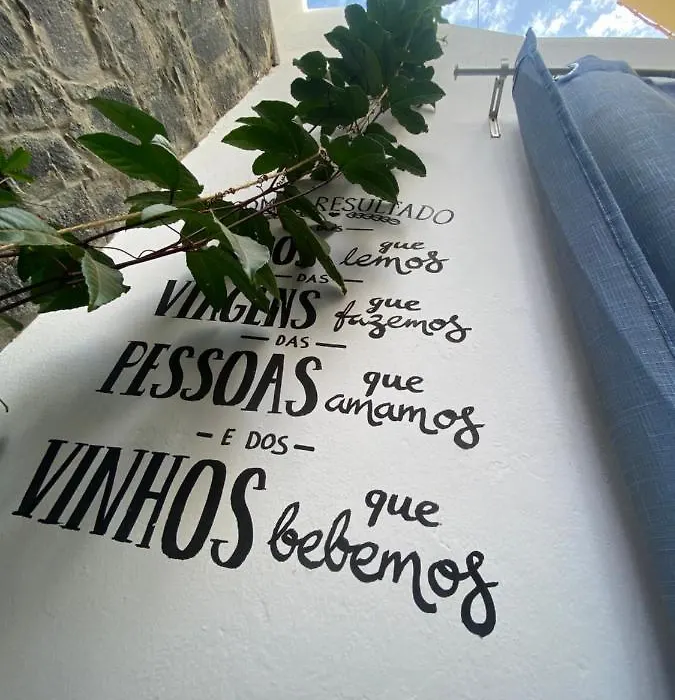 RESULTADO
que lemos
DAS
VIAGENS que fazemos
DAS
PESSOAS que amamos
E DOS
VINHOS que bebemos